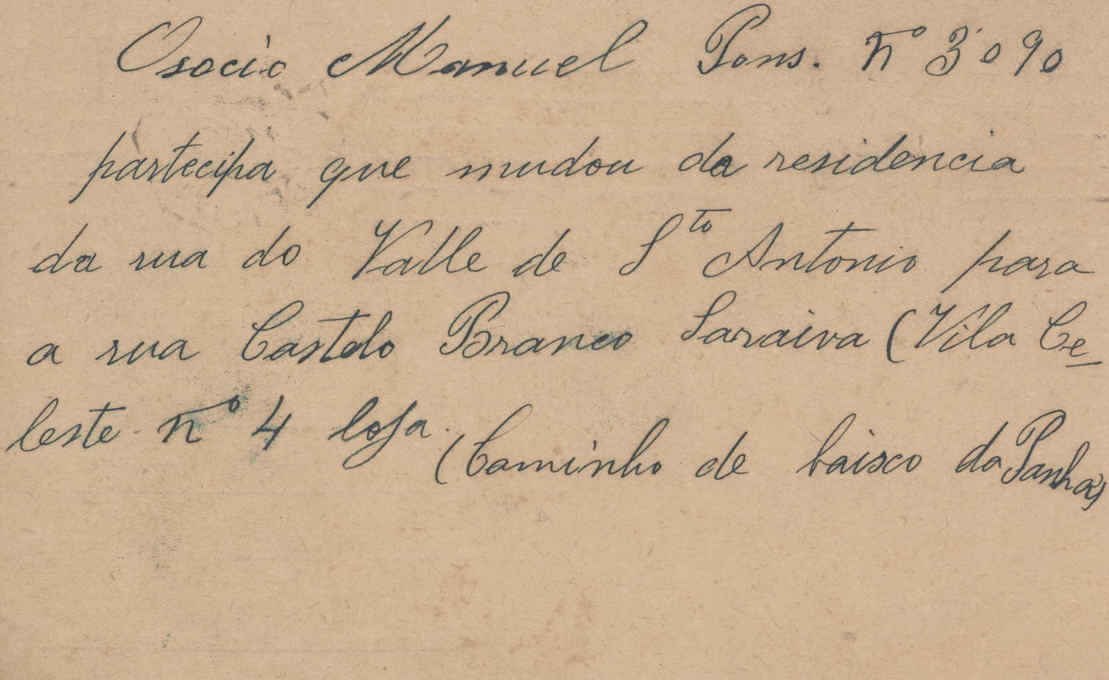 Osocio Manuel Pons. nº 3090
partecipa que mudou da residencia
da rua do Valle de Sto Antonio para
a rua Castelo Branco Saraiva (Vila Ce_
leste nº 4 loja.
(Caminho de baisco da Panha)